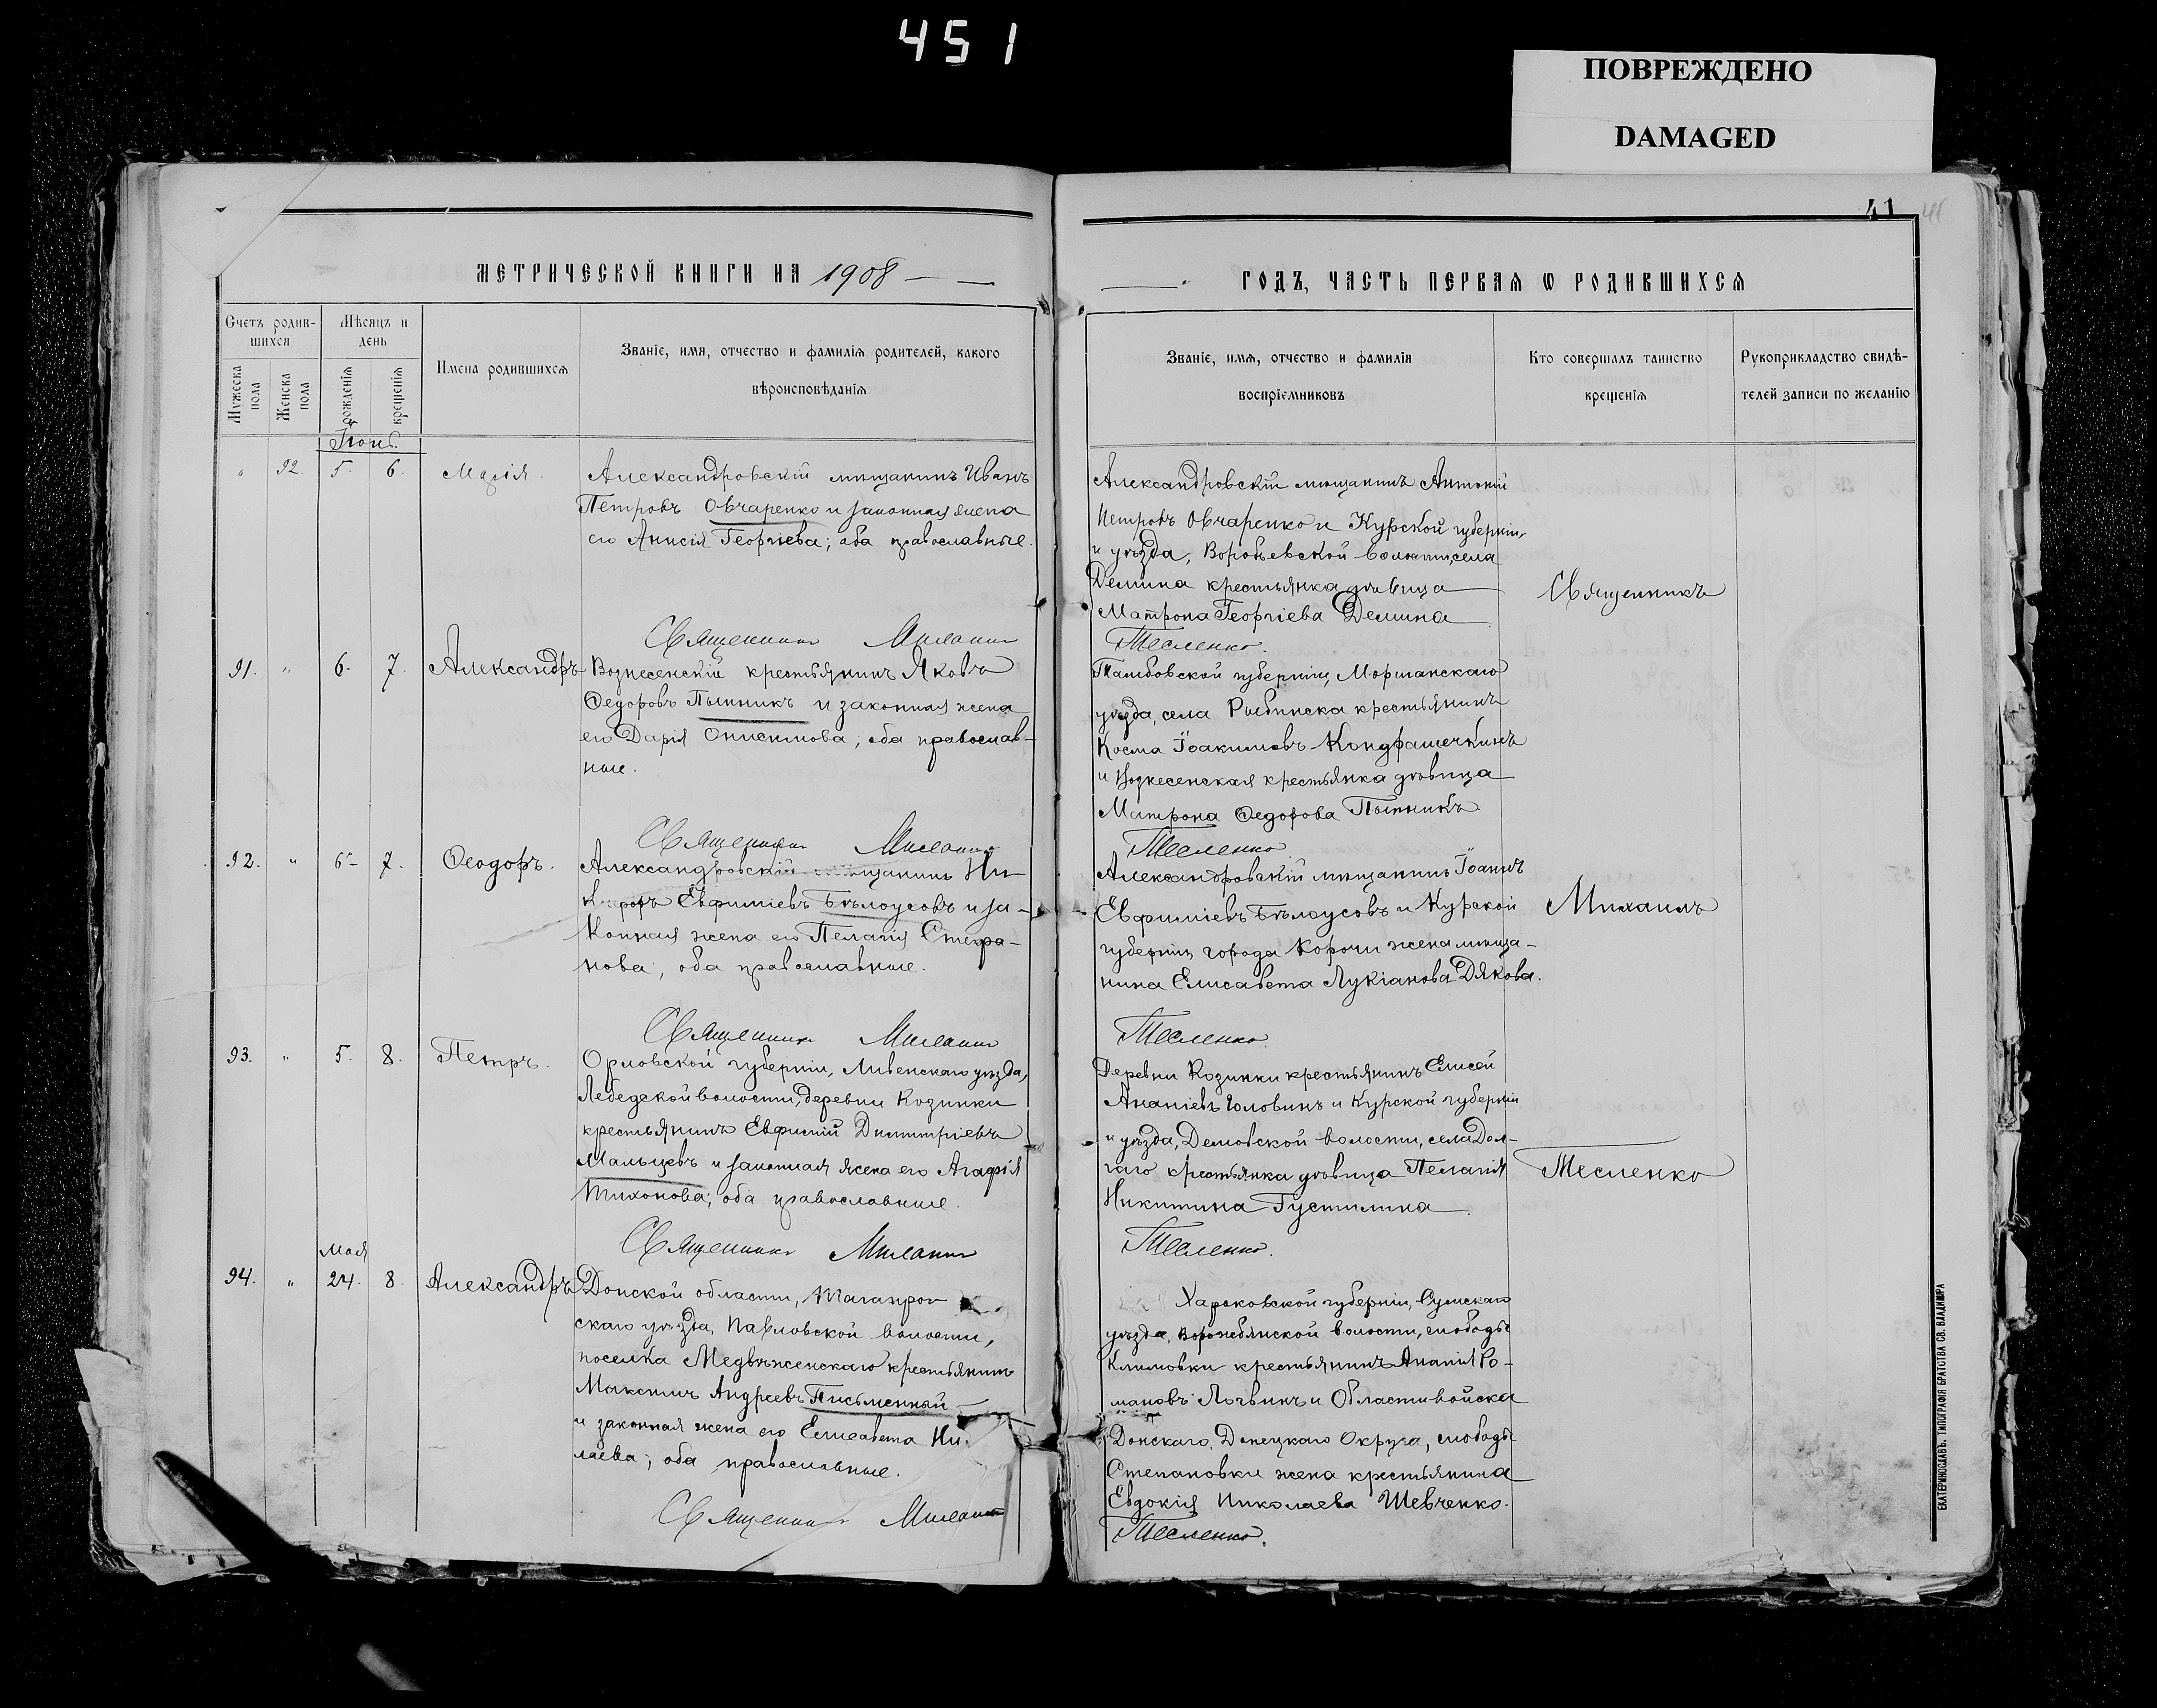 451
ПОВРЕЖДЕНО
DAMAGED
41
МЕТРИЧЕСКОЙ КНИГИ НА 1908
Счетъ родив-
шихся
Мѣсяцъ и
день
Мужеска
пола
Женска
пола
рожденія
крещенія
Имена родившихся
Званіе, имя, отчество и фамилія родителей, какого
вѣроисповѣданія
92. 5. 6. Марія.
Александровскій мѣщанинъ Иванъ
Петровъ Овчаренко и законная жена
его Анисія Георгіева; оба православные.
Священникъ Михаилъ
91. " 6. 7. Александръ
Вознесенскій крестьянинъ Яковъ
Ѳедоровъ Пытникъ и законная жена
его Дарія Онисимова; оба православ-
ные.
Священникъ Михаилъ
92. " 6. 7. Ѳеодоръ.
Александровскій мѣщанинъ Ни-
Евфиміевъ Бѣлоусовъ и за-
конная жена его Пелагія Стефа-
нова; оба православные.
Священникъ Михаилъ
93. " 5. 8. Петръ.
Орловской губерніи, Ливенскаго уѣзда,
волости, деревни Козинки
крестьянинъ Евфимій Димитріевъ
Мальцевъ и законная жена его Агафія
Тихонова; оба православные.
Священникъ Михаилъ
Мая
94. " 24. 8. Александръ
Донской области, Таганрог
скаго уѣзда, Павловской волости,
поселка Медвѣженскаго крестьянинъ
Максимъ Андреевъ Письменный
и законная жена его Елисавета Ни
лаева; оба православные.
Священникъ Михаилъ
ГОДЪ, ЧАСТЬ ПЕРВАЯ Ѡ РОДИВШИХСЯ
Званіе, имя, отчество и фамилія
воспріемниковъ
Кто совершалъ таинство
крещенія
Рукоприкладство свидѣ-
телей записи по желанію
Александровскій мѣщанинъ Антоній
Петровъ Овчаренко и Курской губерніи
и уѣзда, Воробьевской волости, села
Демина крестьянка дѣвица
Матрона Георгіева Демина
Тесленко.
Тамбовской губерніи, Моршанскаго
уѣзда, села Рыбинска крестьянинъ
Косма Іоакимовъ Кондрашечкинъ
и Вознесенская крестьянка дѣвица
Матрона Ѳедорова Пытникъ
Тесленко
Александровскій мѣщанинъ Іоаннъ
Евфиміевъ Бѣлоусовъ и Курской
губерніи, города Корочи жена мѣща-
нина Елисавета Лукіанова Дякова.
Тесленко.
Деревни Козинки крестьянинъ Елисей
Ананіевъ Головинъ и Курской губерніи
и уѣзда, волости, села Дол-
гаго крестьянка дѣвица Пелагія
Никитина Густилина
Тесленко.
Харьковской губерніи, Сумскаго
уѣзда, Ворожбянской волости, слободы
Климовки крестьянинъ Ананія Ро-
мановъ Логвинъ и Области войска
Донскаго, Донецкаго Округа, слободы
Степановки жена крестьянина
Евдокія Николаева Шевченко.
Тесленко.
Священникъ
Михаилъ
Тесленко
ЕКАТЕРИНОСЛАВЪ. ТИПОГРАФІЯ БРАТСТВА СВ. ВЛАДИМІРА